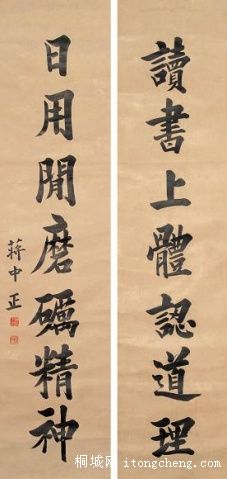 讀書上體認道理
日用間磨礪精神
蒋中正
桐城网 itongcheng.com